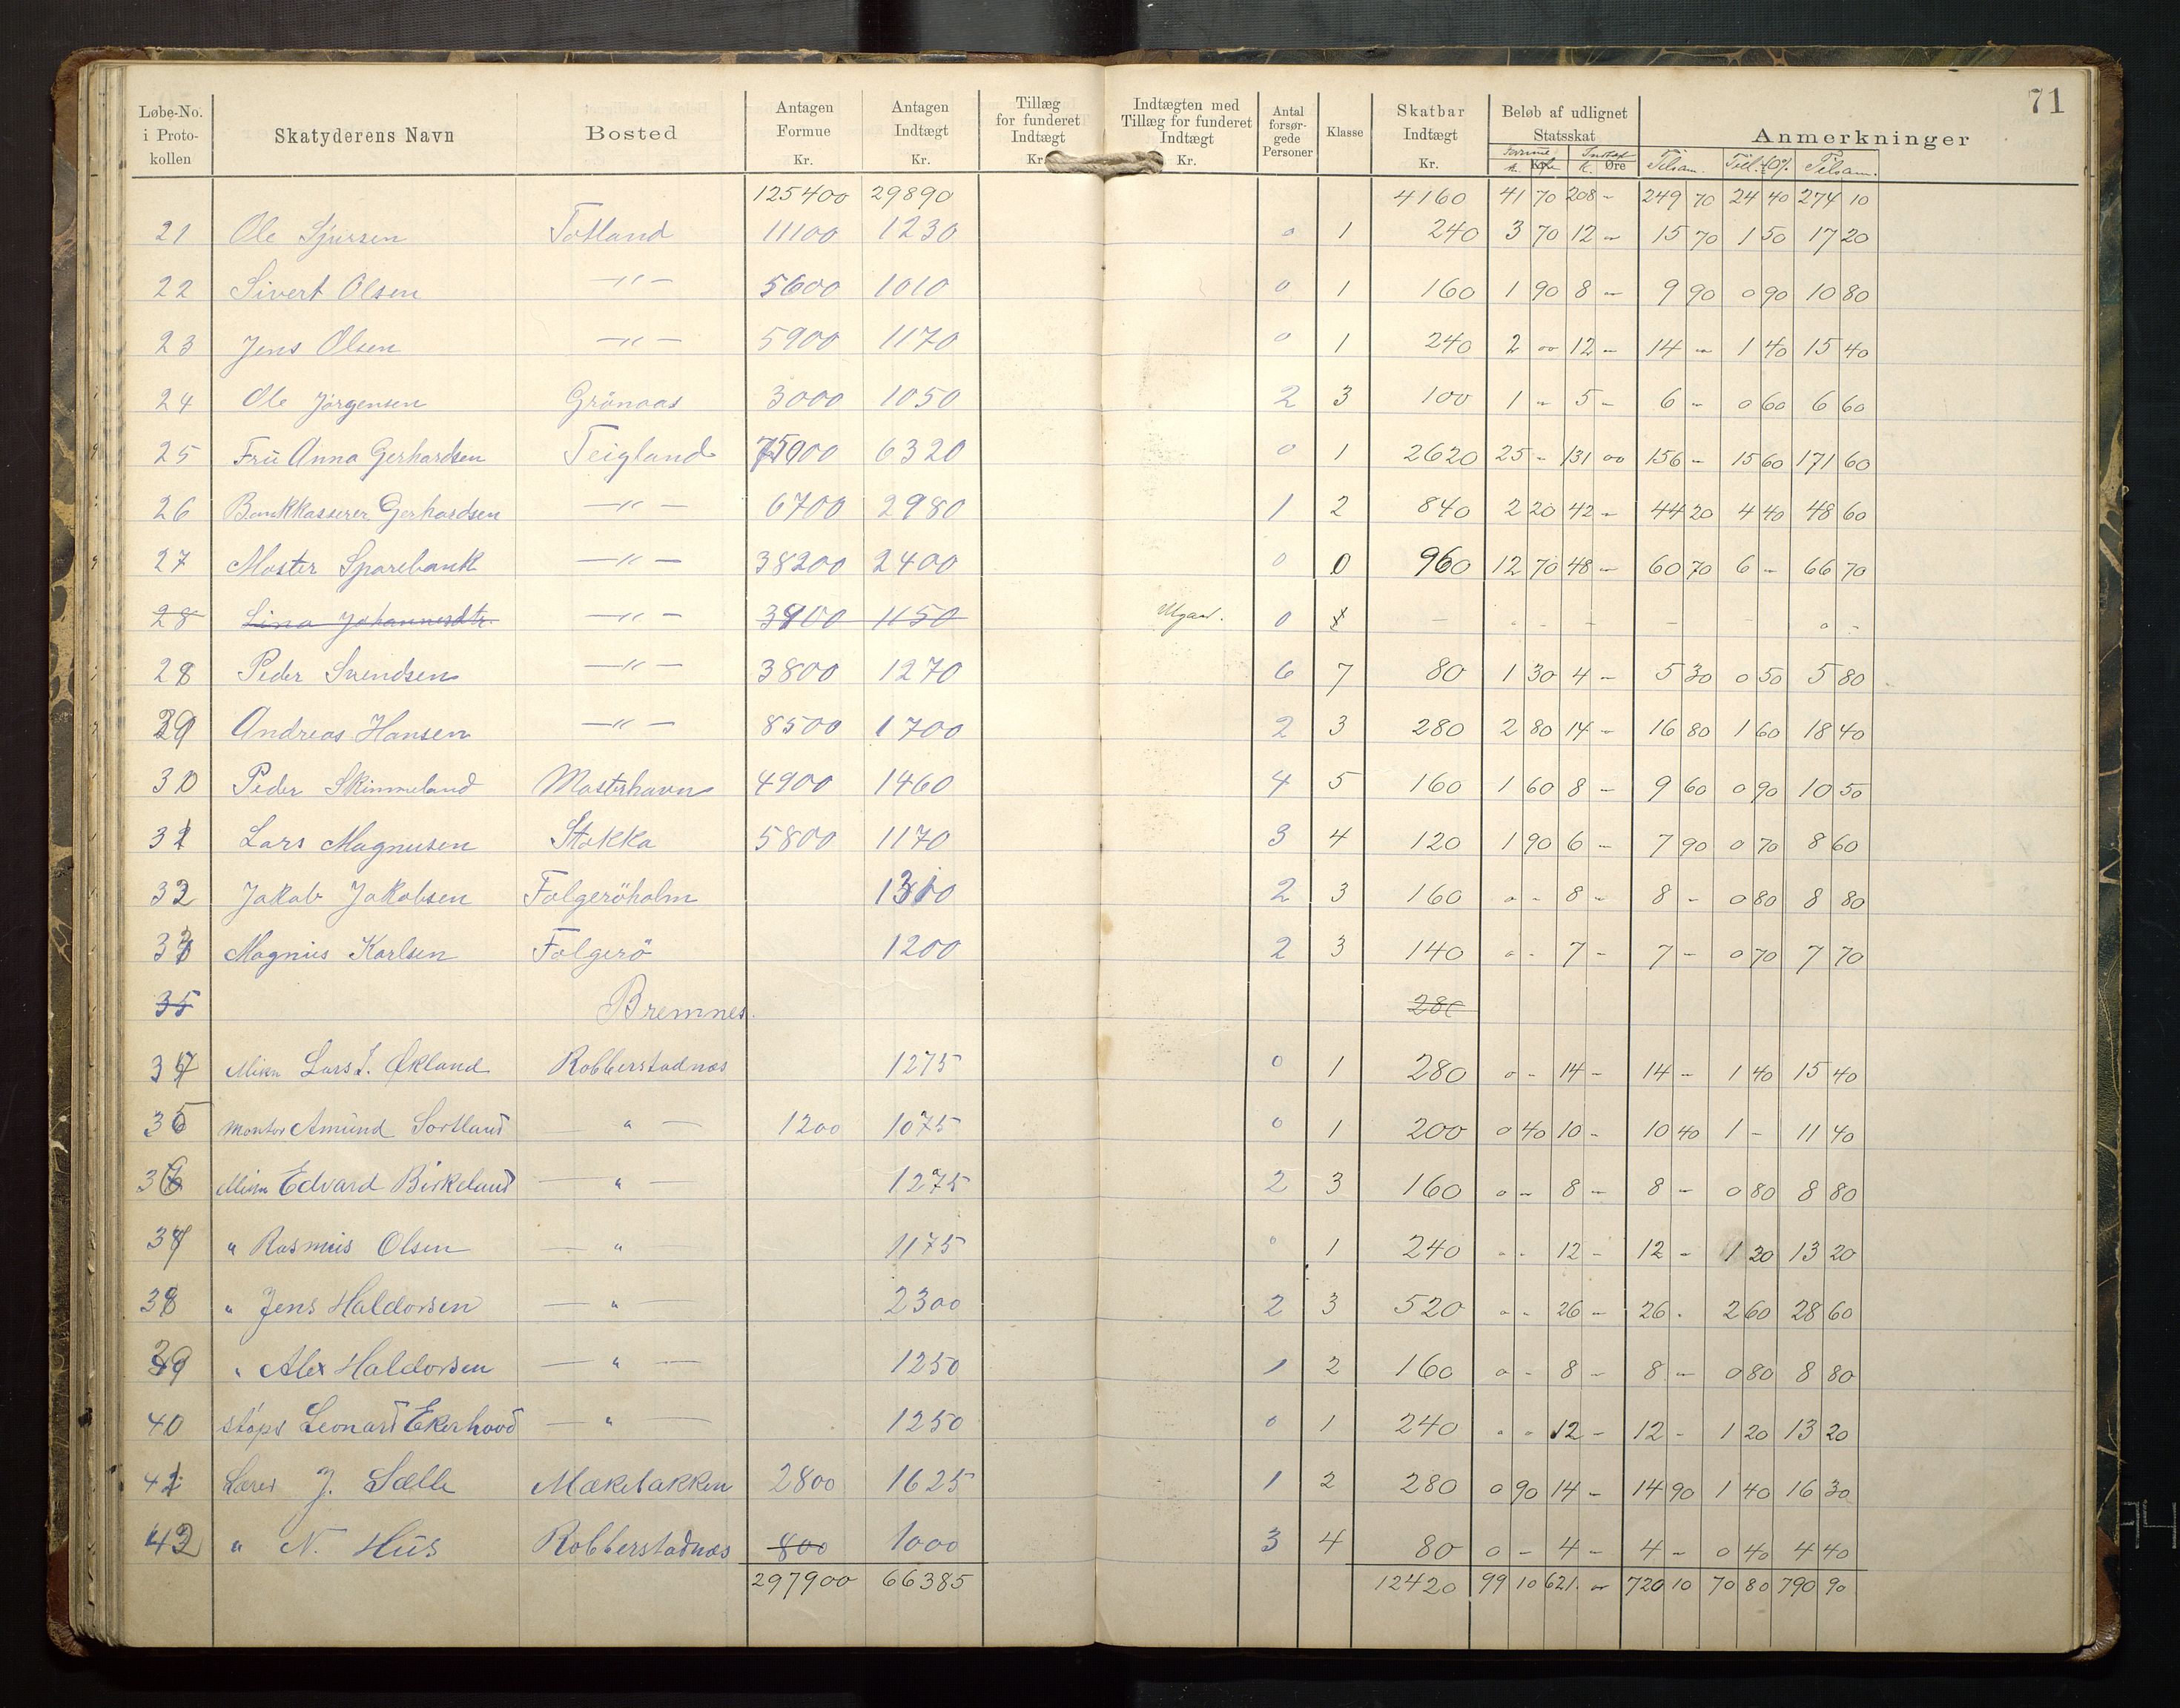 71
Løbe-No. i Proto-kollen | Skatyderens Navn | Bosted | Antagen Formue Kr. | Antagen Indtægt Kr. | Tillæg for funderet Indtægt Kr. | Indtægten med Tillæg for funderet Indtægt Kr. | Antal forsør-gede Personer | Klasse | Skatbar Indtægt Kr. | Beløb af udlignet Statsskat | Anmerkninger
Formue K. Øre | Indtægt K. Øre | Tilsam. | Till. 10% | Tilsam.
125400 29890 4160 41 70 208 - 249 70 24 40 274 10
21 Ole Sjursen Totland 11100 1230 0 1 240 3 70 12 - 15 70 1 50 17 20
22 Sivert Olsen -"- 5600 1010 0 1 160 1 90 8 - 9 90 0 90 10 80
23 Jens Olsen -"- 5900 1170 0 1 240 2 00 12 - 14 - 1 40 15 40
24 Ole Jörgensen Grönaas 3000 1050 2 3 100 1 - 5 - 6 - 0 60 6 60
25 Fru Anna Gerhardsen Teigland 75000 6320 0 1 2620 25 - 131 00 156 - 15 60 171 60
26 Bankkasserer Gerhardsen -"- 6700 2980 1 2 840 2 20 42 - 44 20 4 40 48 60
27 Moster Sparebank -"- 38200 2400 0 0 960 12 70 48 - 60 70 6 - 66 70
28 Lina Johannesdtr. -"- 3900 1150 Utgaar. 0 - - - - - - 0 -
28 Peder Svendsen -"- 3800 1270 6 7 80 1 30 4 - 5 30 0 50 5 80
29 Andreas Hansen -"- 8500 1700 2 3 280 2 80 14 - 16 80 1 60 18 40
30 Peder Skimmeland Mosterhavn 4900 1460 4 5 160 1 60 8 - 9 60 0 90 10 50
31 Lars Magnusen Stokka 5800 1170 3 4 120 1 90 6 - 7 90 0 70 8 60
32 Jakob Jakobsen Folgeröholm 1310 2 3 160 0 - 8 - 8 - 0 80 8 80
33 Magnus Karlsen Folgerö 1200 2 3 140 0 - 7 - 7 - 0 70 7 70
35 Bremnes. 280
34 Mekn Lars I. Økland Robberstadnes 1275 0 1 280 0 - 14 - 14 - 1 40 15 40
35 Montør Amund Sortland - " - 1200 1075 0 1 200 0 40 10 - 10 40 1 - 11 40
36 Mekn Edvard Birkeland - " - 1275 2 3 160 0 - 8 - 8 - 0 80 8 80
37 " Rasmus Olsen - " 1175 0 1 240 - - 12 - 12 - 1 20 13 20
38 " Jens Haldorsen - " - 2300 2 3 520 0 - 26 - 26 . 2 60 28 60
39 " Alex Haldorsen - " - 1250 1 2 160 0 - 8 - 8 - 0 80 8 80
40 støper Leonard Ekerhovd - " - 1250 0 1 240 0 0 12 - 12 - 1 20 13 20
41 Lærer J. Sælle Mækebakken 2800 1625 1 2 280 0 90 14 - 14 90 1 40 16 30
42 " N. Hus Robberstadnes 800 1000 3 4 80 0 - 4 - 4 - 0 40 4 40
297900 66385 12420 99 10 621 - 720 10 70 80 790 90